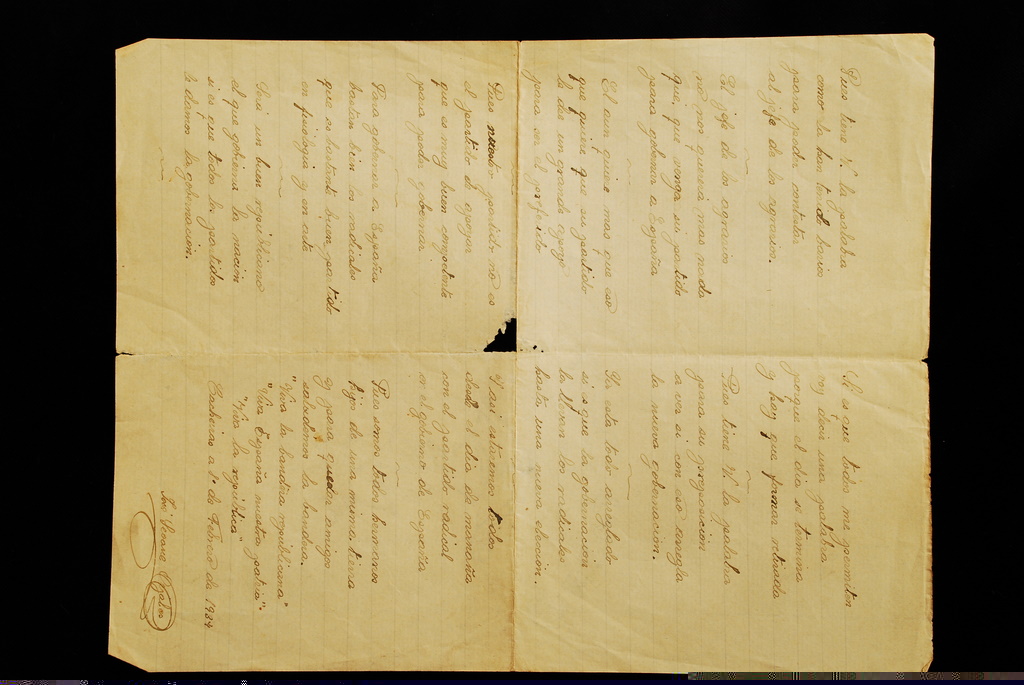 Pues tiene V. la palabra
como la han tenido barios
para poder contestar
al jefe de los agrarios.
El jefe de los agrarios
no nos queria mas nada
que, que venga su partido
para gobernar a España
El aun quiere mas que eso
que quiere que su partido
le de un grande apoyo
para ser el preferido
Pues nuestro partido no es
el partido de apoyar
que es muy buen competente
para poder gobernar.
Para gobernar a España
bastan bien los radicales
que es bastante buen partido
en y en arte
Será un buen republicano
el que gobierna la nación
si es que todos los partidos
le damos la gobernación.
Si es que todos me permiten
voy decir una palabra
porque el dia se termina
y hay que formar retirada
Pues tiene V. la palabra
para su proposicion
a ver si con eso arregla
la nueva gobernación.
Ya esta todo arreglado
si es que la gobernacion
la llevan los radicales
hasta una nueva elección.
Y asi estaremos todos
desde el dia de mañana
con el partido radical
en el gobierno de España
Pues somos todos hermanos
hijos de una misma tierra
Y para quedar amigos
saludemos la bandera.
"Viva la bandera republicana"
"Viva España nuestra patria".
"Viva la república"
a 5 de Febrero de 1934
José Seoane